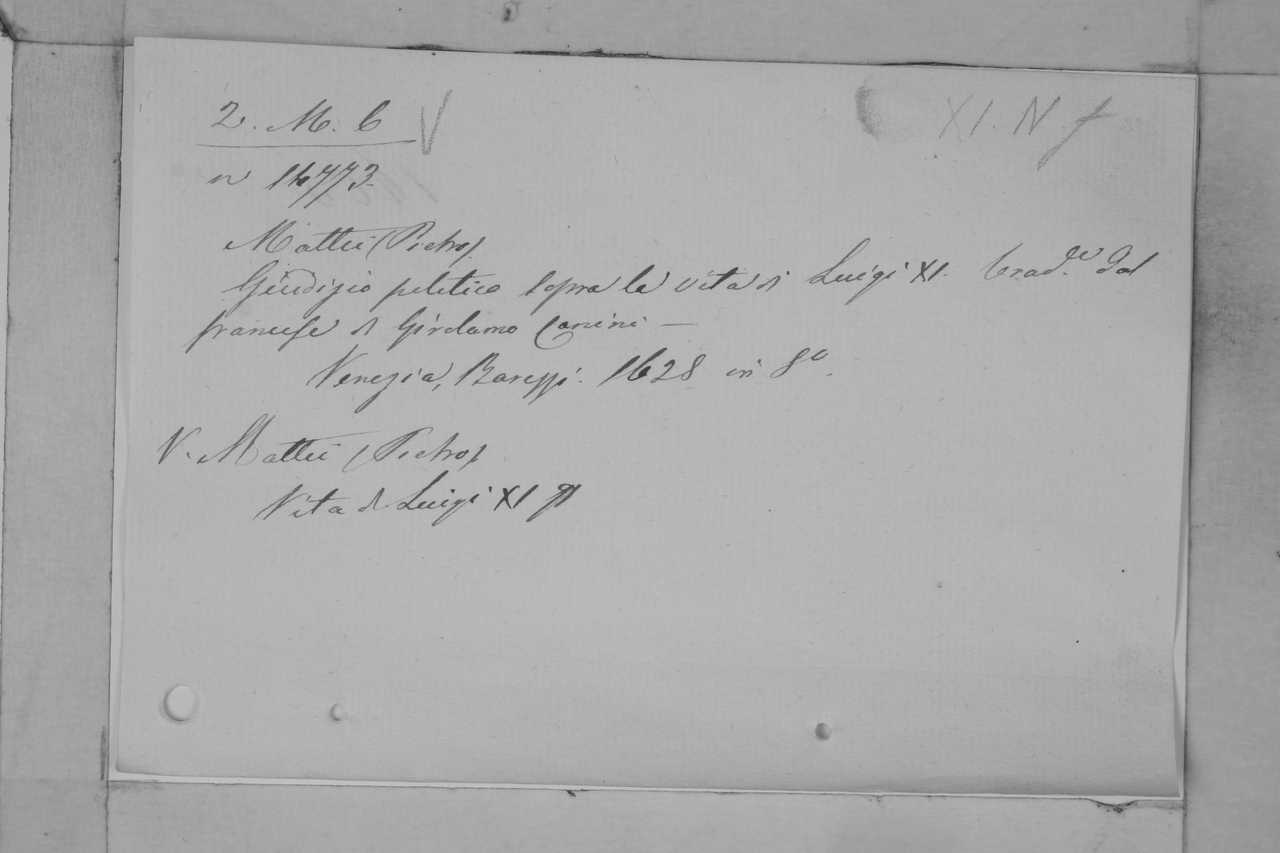 2. M. 6 V XI. N f
n 14773.
Mattei (Pietro).
Giudizio politico sopra la vita di Luigi XI. trad.e dal
francese di Girolamo Canini —
Venezia, Barezzi. 1628 in 8º.
V. Mattei (Pietro)
Vita di Luigi XI